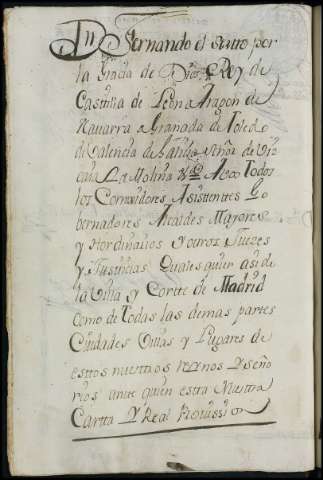 Dn Fernando el sexto por
la Gracia de Dios Rey de
Casttilla de Leon a Aragon de
Navarra a Granada de Toledo
de Valencia de Señor de Viz
caia La Molina A Todos
los Correxidores Asisttenttes Go
bernadores Alcaldes Mayores
y Hordinarios y ottros Juezes
y Justticias Quales quier asi de
la Villa y Cortte de Madrid
como de Todas las demas parttes
Ciudades Villas y Lugares de
esttos nuesttros reinos y seño
rios antte quien estta Nuesttra
Cartta y Real Provission